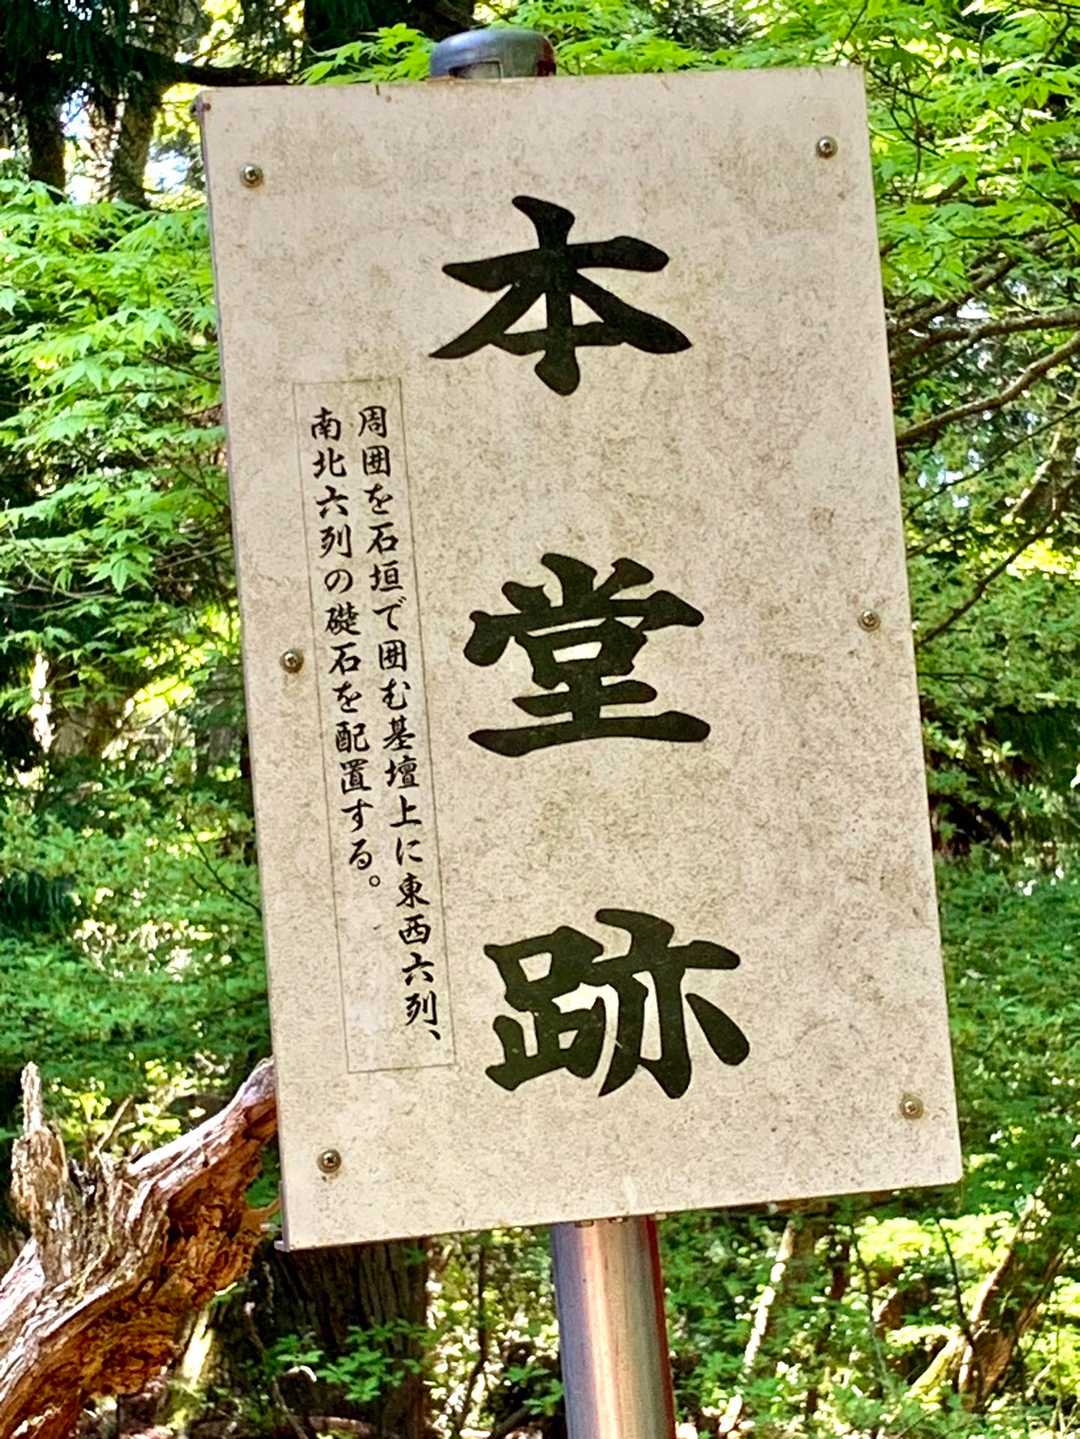 本堂跡
周囲を石垣で囲む基壇上に東西六列、
南北六列の礎石を配置する。